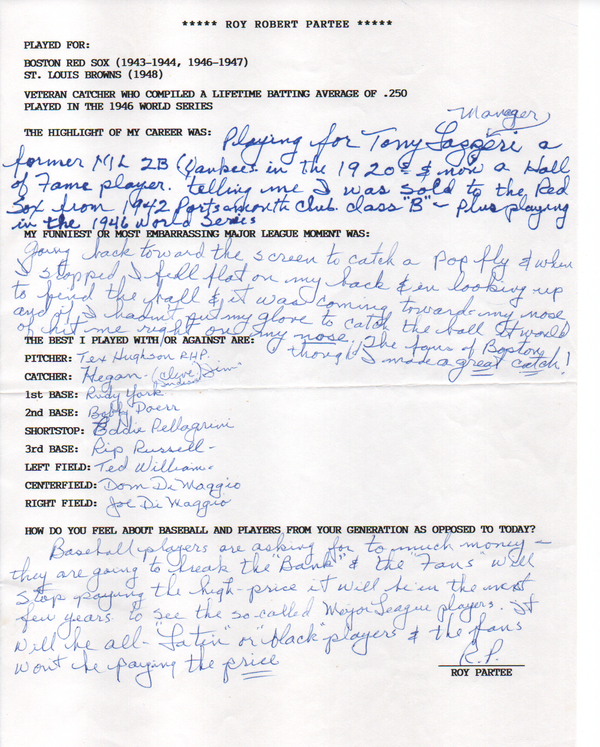 ***** ROY ROBERT PARTEE *****
PLAYED FOR:
BOSTON RED SOX (1943-1944, 1946-1947)
ST. LOUIS BROWNS (1948)
VETERAN CATCHER WHO COMPILED A LIFETIME BATTING AVERAGE OF .250
PLAYED IN THE 1946 WORLD SERIES
Manager
THE HIGHLIGHT OF MY CAREER WAS: Playing for Tony Lazzeri a
former M/L 2B (Yankees in the 1920s & now a Hall
of Fame player. telling me I was sold to the Red
Sox from 1942 Portsmouth Club. class "B" - Plus playing
in the 1946 World Series
MY FUNNIEST OR MOST EMBARRASSING MAJOR LEAGUE MOMENT WAS:
Going back toward the screen to catch a pop fly & when
I stopped, I fell flat on my back & in looking up
to find the ball & it was coming toward my nose
and if I hadn't put my glove to catch the ball it would
of hit me right on my nose. The fans of Boston
thought I made a great catch!
THE BEST I PLAYED WITH/OR AGAINST ARE:
PITCHER: Tex Hughson R.H.P.
CATCHER: Hegan - (Cleve Indians) "Jim"
1st BASE: Rudy York
2nd BASE: Bobby Doerr
SHORTSTOP: Eddie Pellagrini
3rd BASE: Rip Russell -
LEFT FIELD: Ted Williams
CENTERFIELD: Dom DiMaggio
RIGHT FIELD: Joe DiMaggio
HOW DO YOU FEEL ABOUT BASEBALL AND PLAYERS FROM YOUR GENERATION AS OPPOSED TO TODAY?
Baseball players are asking for to much money -
they are going to break the "Bank" & the "Fans" will
stop paying the high-price it will be in the next
few years to see the so-called Major League players. It
will be all "Latin" or "black" players & the fans
wont be paying the price
R.P.
ROY PARTEE